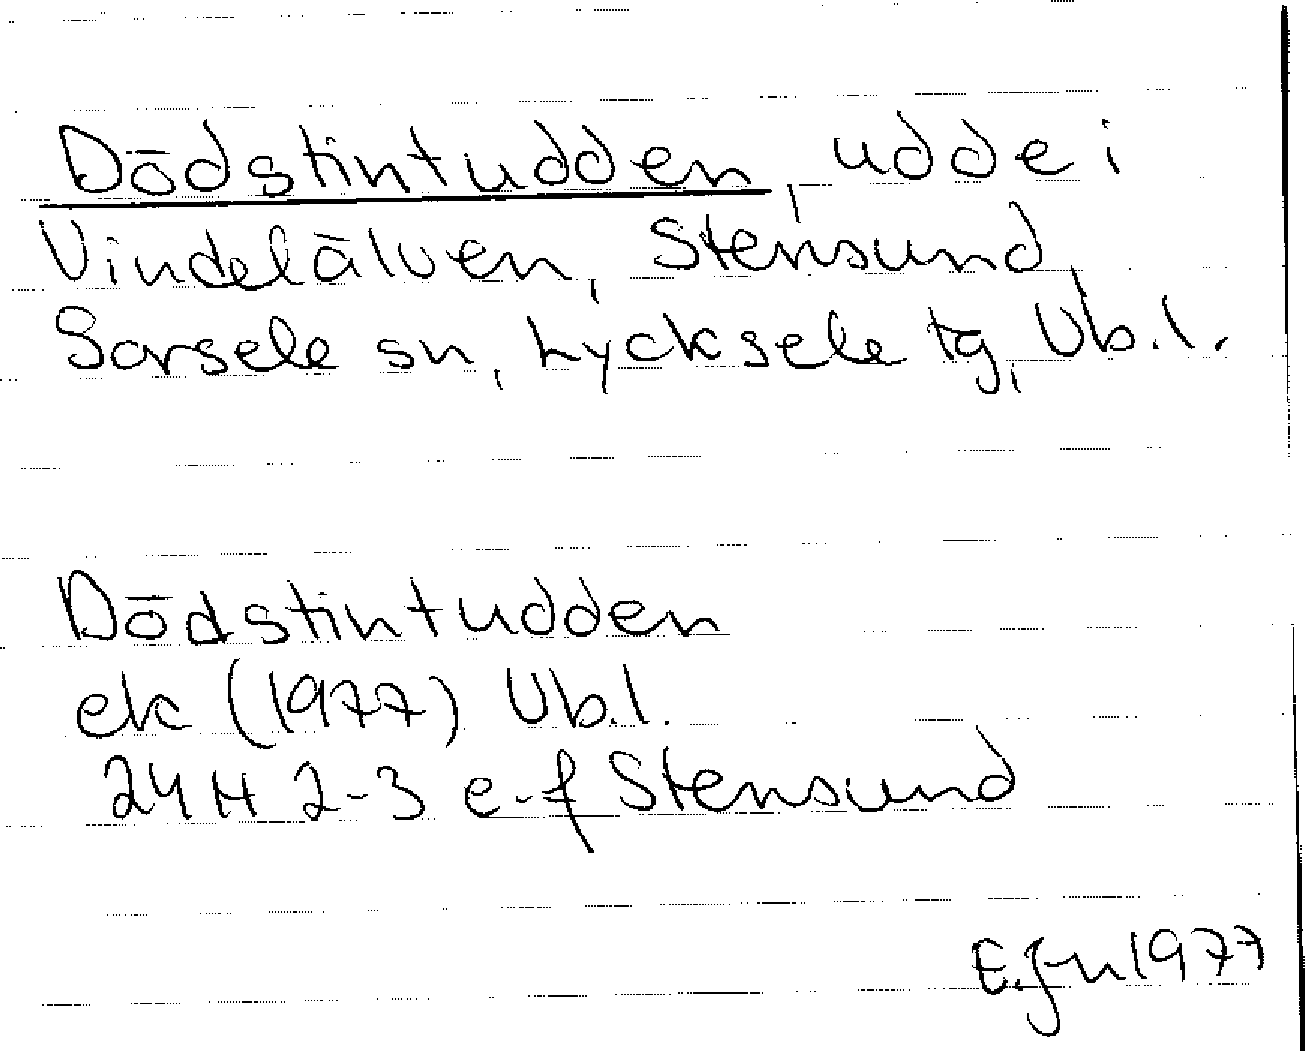 Dödstintudden, udde i
Vindelälven, Stensund,
Sorsele sn, Lycksele tg, Vb.l.
Dödstintudden
ek (1977) Vb.l.
24 H 2-3 e-f Stensund
E. J-n 1977